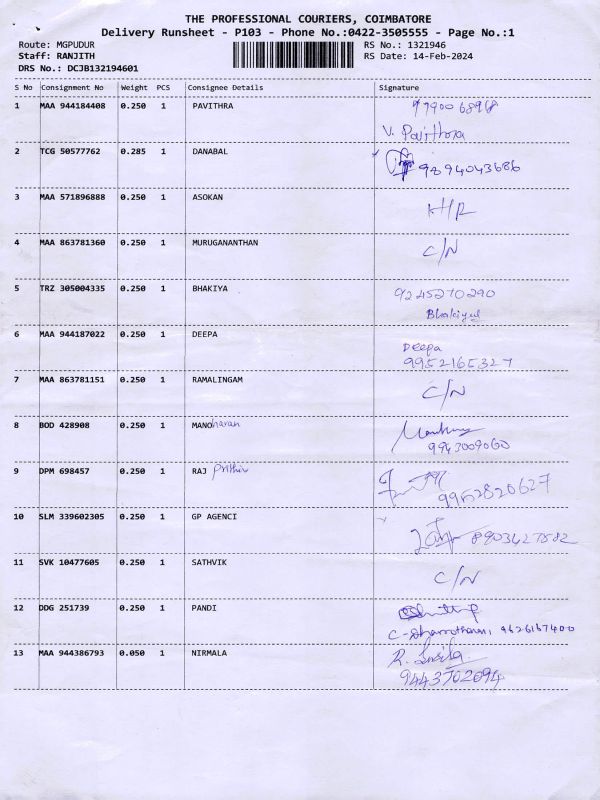 THE PROFESSIONAL COURIERS, COIMBATORE
Delivery Runsheet - P103 - Phone No.:0422-3505555 - Page No.:1
Route: MGPUDUR RS No.: 1321946
Staff: RANJITH RS Date: 14-Feb-2024
DRS No.: DCJB132194601
S No Consignment No Weight PCS Consignee Details Signature
1 MAA 944184408 0.250 1 PAVITHRA
V. Pavithra
2 TCG 50577762 0.285 1 DANABAL 9894043686
3 MAA 571896888 0.250 1 ASOKAN
4 MAA 863781360 0.250 1 MURUGANANTHAN C/N
5 TRZ 305004335 0.250 1 BHAKIYA 9245270290
6 MAA 944187022 0.250 1 DEEPA Deepa
9952165327
7 MAA 863781151 0.250 1 RAMALINGAM C/N
8 BOD 428908 0.250 1 MANOharan
9943009060
9 DPM 698457 0.250 1 RAJ 9952820627
10 SLM 339602305 0.250 1 GP AGENCI 8903427582
11 SVK 10477605 0.250 1 SATHVIK C/N
12 DDG 251739 0.250 1 PANDI
9626167400
13 MAA 944386793 0.050 1 NIRMALA
9443702094